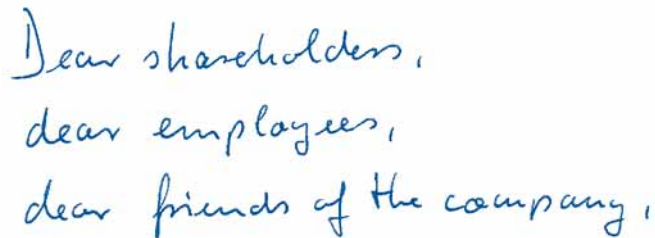 Dear shareholders,
dear employees,
dear friends of the company,